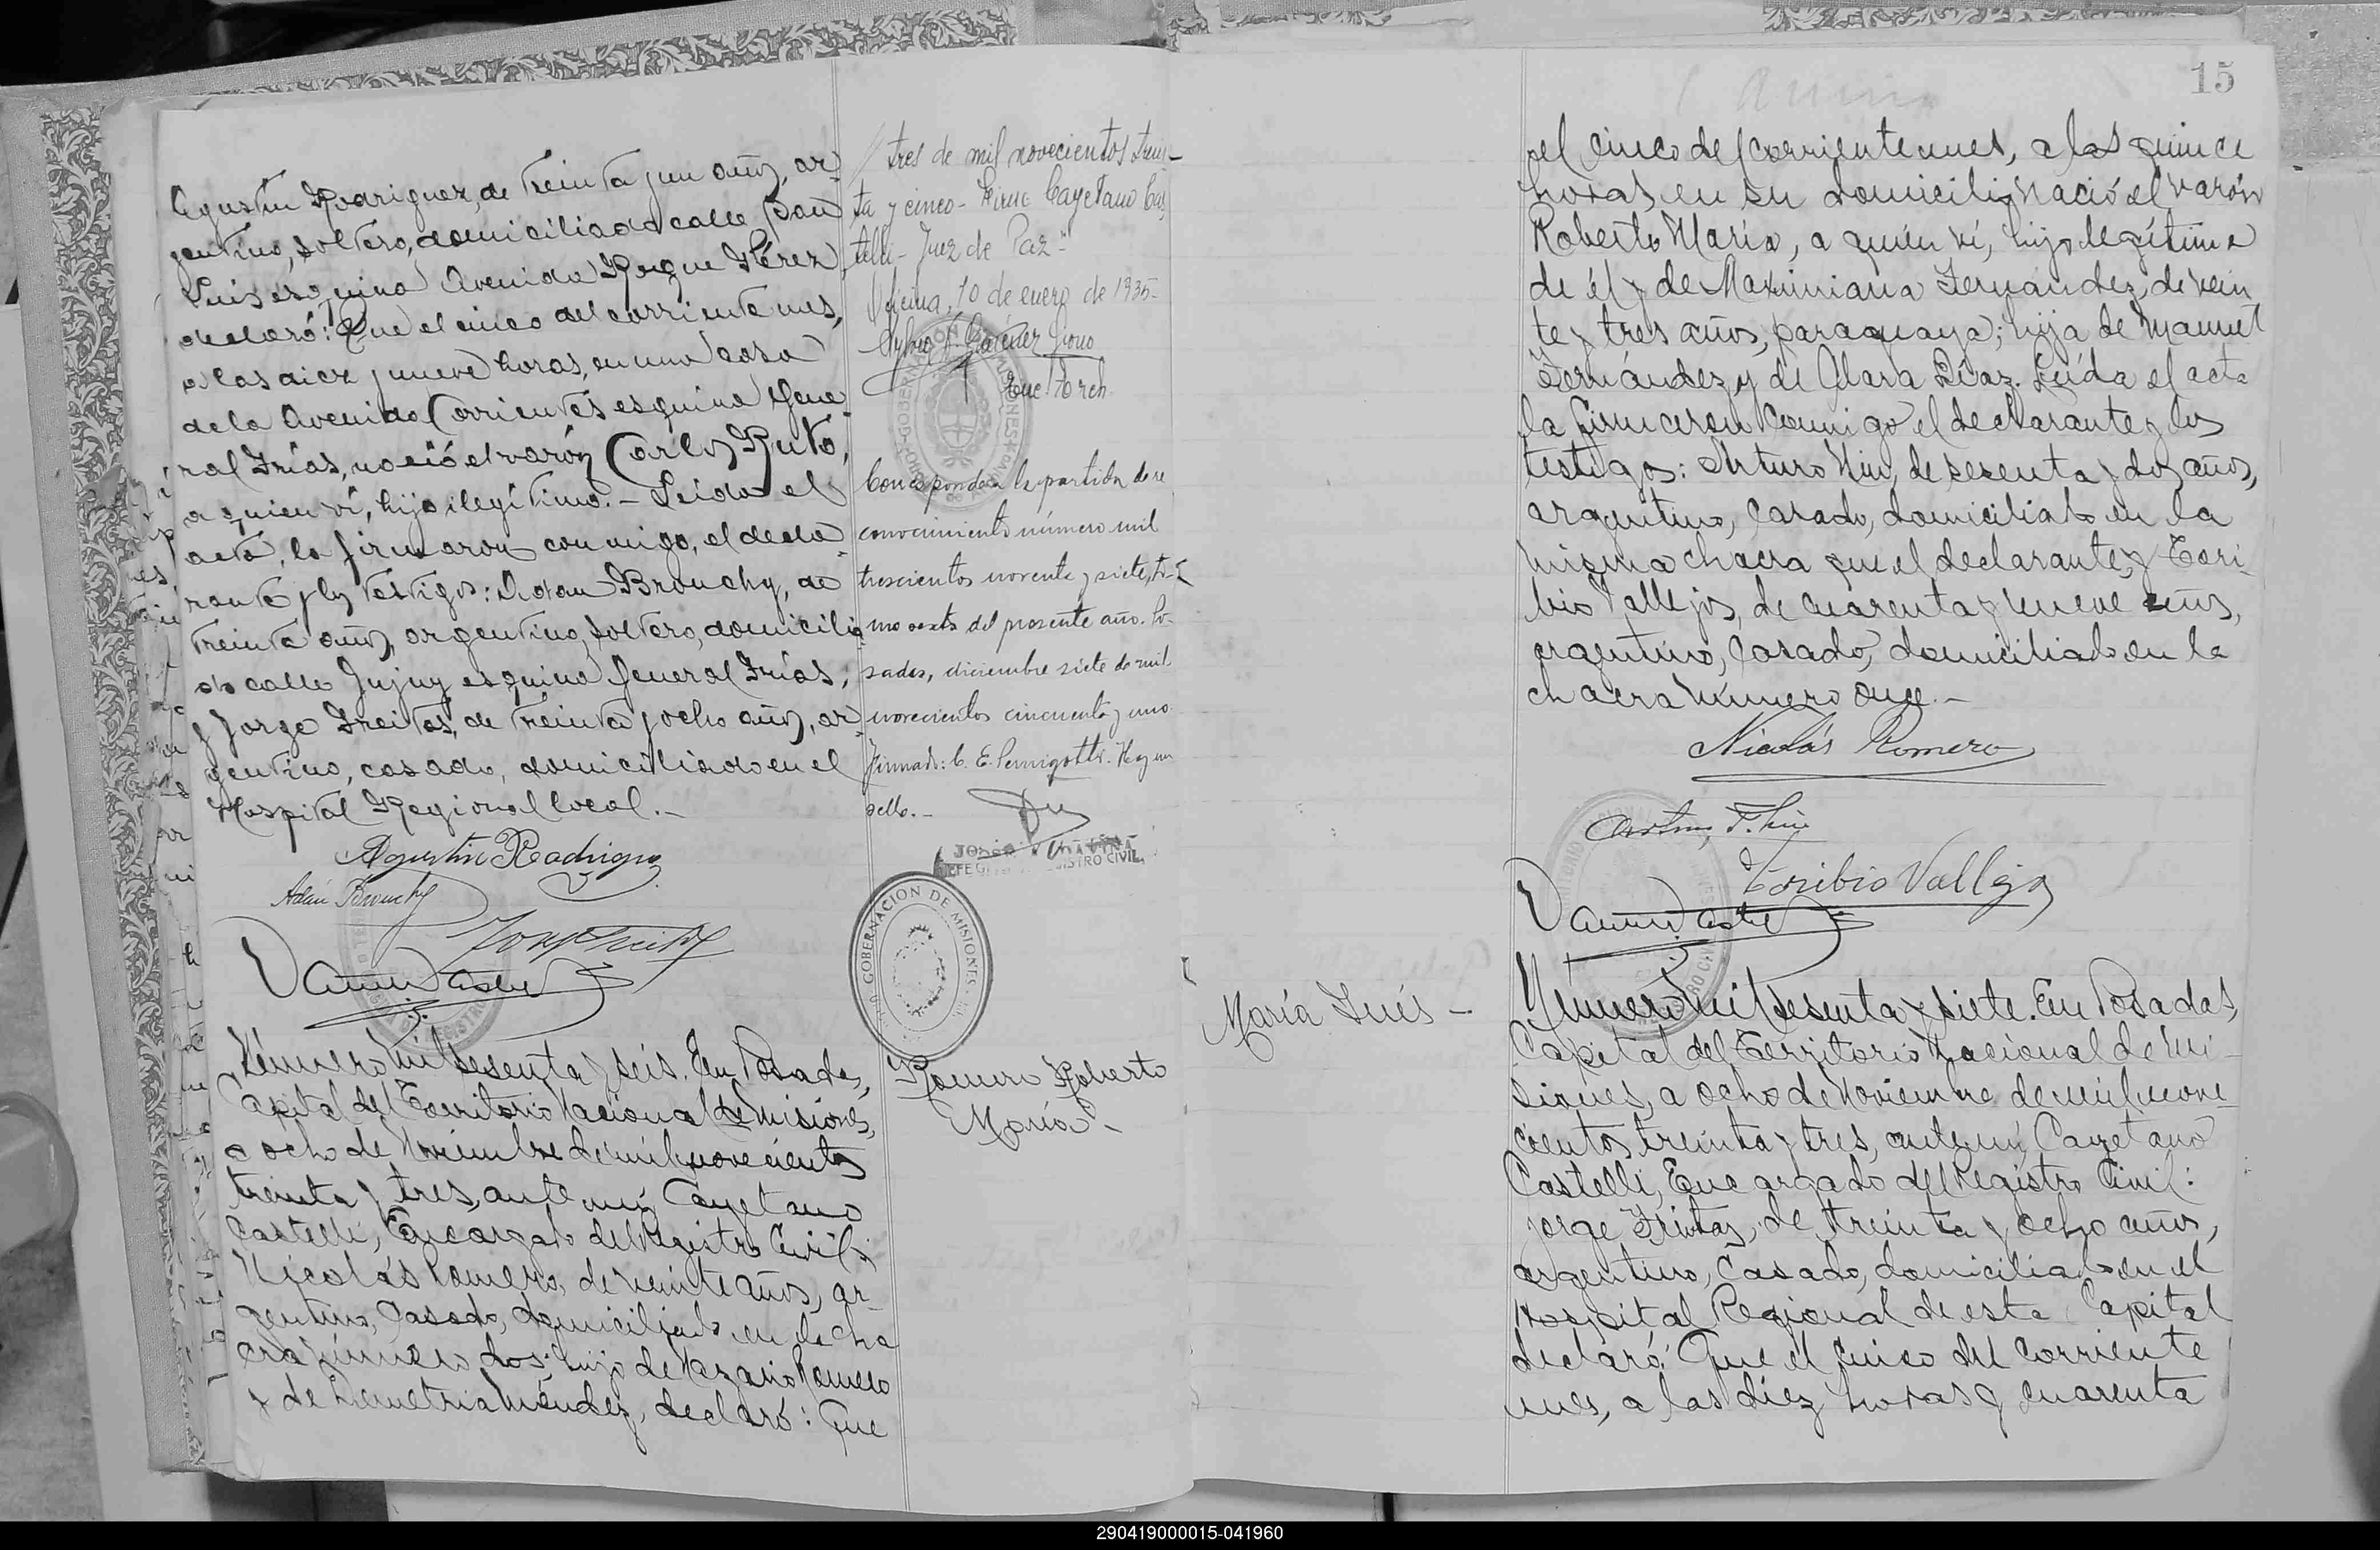 Agustín Rodriguez, de treinta y un años, ar-
gentino, soltero, domiciliado calle San
Luis esquina Avenida Roque Pérez
declaró: Que el cinco del corriente mes,
a las diez y nueve horas, en una casa
de la Avenida Corrientes esquina Gene-
ral Frías, nació el varón Carlos Ruto,
a quien ví, hijo ilegítimo.- Leída el
acta, la firmaron conmigo, el decla-
rante y los testigos: Adan Brouchy, de
treinta años, argentino, soltero, domicilia-
do calle Jujuy esquina General Frías;
y Jorge Freitas, de treinta y ocho años, ar-
gentino, casado, domiciliado en el
Hospital Regional local.-
Agustin Rodriguez
Adán Brouchy
Número mil sesenta y seis. En Posadas,
Capital del Territorio Nacional de Misiones,
a ocho de Noviembre de mil novecientos
treinta y tres, ante mí, Cayetano
Castelli, Encargado del Registro Civil:
Nicolás Romero, de veinte años, ar-
gentino, casado, domiciliado en la cha-
cra número dos; hijo de Romero
y de Demetria Méndez, declaró: Que
tres de mil novecientos trein-
ta y cinco- Firma: Cayetano Cas-
telli- Juez de Paz-"
Oficina, 10 de enero de 1935-
Enc. Arch.
Corresponde a la partida de re
conocimiento número mil
trescientos noventa y siete, to-
mo sexto del presente año. Po-
sadas, diciembre siete de mil
novecientos cincuenta y uno.
Firmado: C. E. Hay un
sello.-
REGISTRO CIVIL
GOBERNACION DE MISIONES
Romero Roberto
María-
15
el cinco del corriente mes, a las quince
horas, en su domicilio, nació el varón
Roberto María, a quien ví, hijo legítimo
de él y de Maximiana Fernández, de vein-
te y tres años, paraguaya; hija de Manuel
Fernández y de Clara Díaz. Leída el acta
la firmaron conmigo el declarante y los
testigos: Arturo de sesenta y dos años,
argentino, casado, domiciliado en la
misma chacra que el declarante, y Tori-
bio Vallejos, de cuarenta y nueve años,
argentino, casado, domiciliado en la
chacra número once.-
Nicolás Romero
Toribio Vallejos
María Inés -
Número mil sesenta y siete. En Posadas,
Capital del Territorio Nacional de Mi-
siones, a ocho de Noviembre de mil nove-
cientos treinta y tres, ante mí, Cayetano
Castelli, Encargado del Registro Civil:
Jorge Freitas, de treinta y ocho años,
argentino, casado, domiciliado en el
Hospital Regional de esta Capital
declaró: Que el cinco del corriente
mes, a las diez horas y cuarenta
290419000015-041960